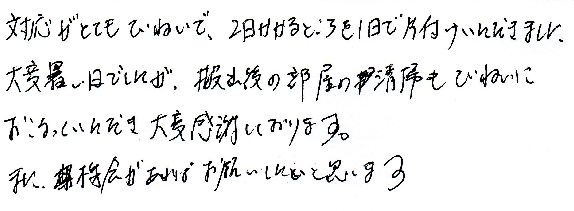 対応がとてもていねいで、2日かかるところを1日で片付けていただきました。
大変暑い日でしたが、搬出後の部屋の清掃もていねいに
おこなっていただき大変感謝しております。
また、機会があればお願いしたいと思います